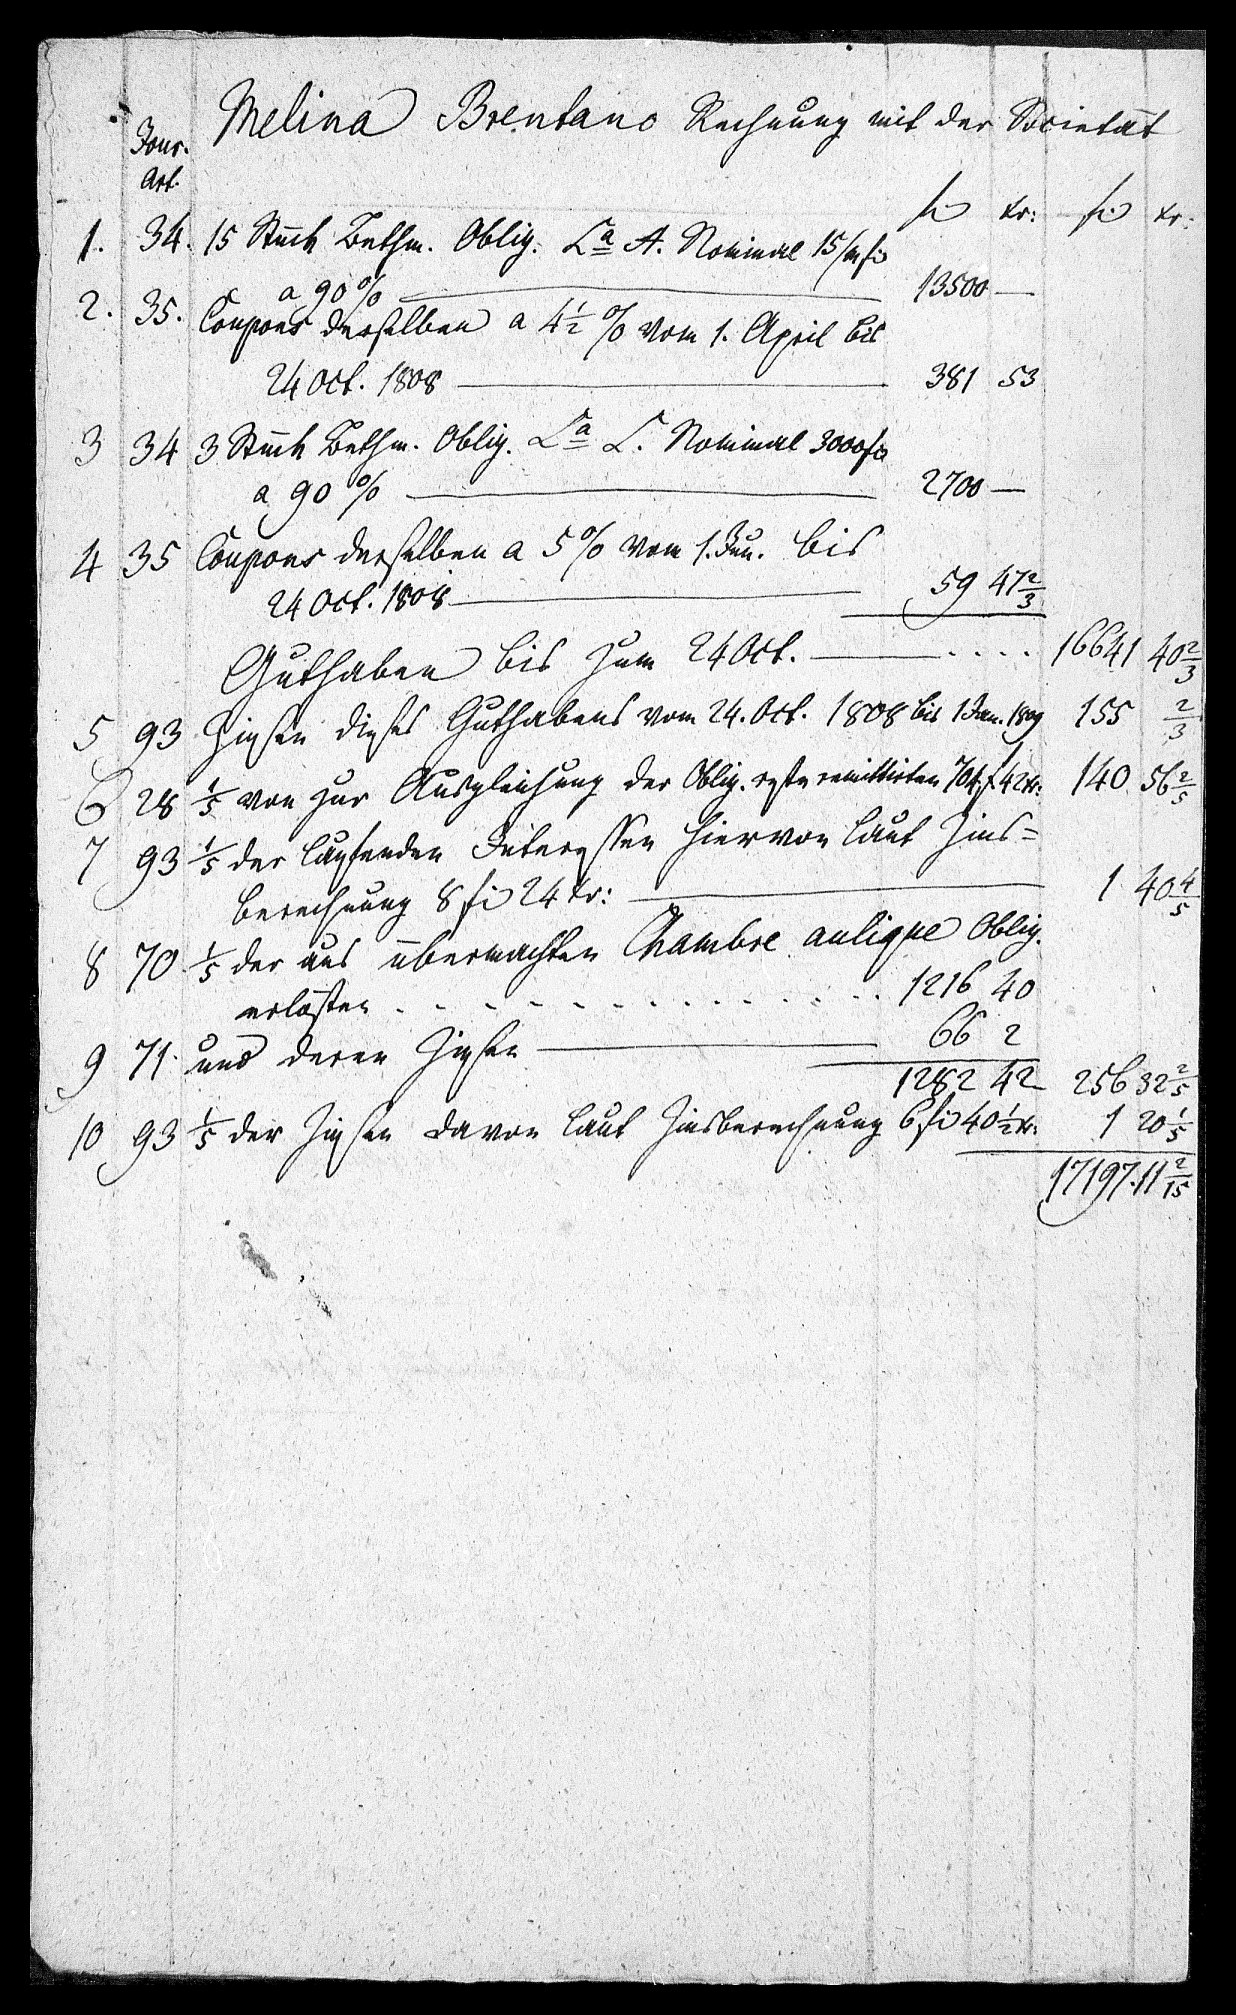 Melina Brentano Rechnung mit der Societät
Jour.
Art.
fl kr: fl kr:
1. 34. 15 Stück Bethm. Oblig. La A. Nominal 15/m fl
a 90 % 13500 —
2. 35. Coupons derselben a 4 1/2 % vom 1. April bis
24 Oct. 1808 — 381 53
3 34 3 Stück Bethm. Oblig. La L. Nominal 3000 fl
a 90 % — 2700 —
4 35 Coupons derselben a 5 % vom 1. Jun. bis
24 Oct. 1808 — 59 47 2/3
Guthaben bis zum 24 Oct. — 16641 40 2/3
5 93 Zinsen dieses Guthabens vom 24. Oct. 1808 bis 1 Jan. 1809 155 2/3
6 28 1/5 von zur Ausgleichung der Oblig. remittirten 704 f 42 kr: 140 56 2/5
7 93 1/5 der laufenden Interessen hiervon laut Zins=
berechnung 8 fl 24 kr: — 1 40 4/5
8 70. 1/5 der aus übermachten Chambre aulique Oblig.
erlösten . . . . . . . . . . . . 1216 40
9 71. und deren Zinsen — 66 2
1282 42 256 32 2/5
10 93 1/5 der Zinsen davon laut Zinsberechnung 6 fl 40 1/2 kr: 1 20 1/5
17197. 11 2/15